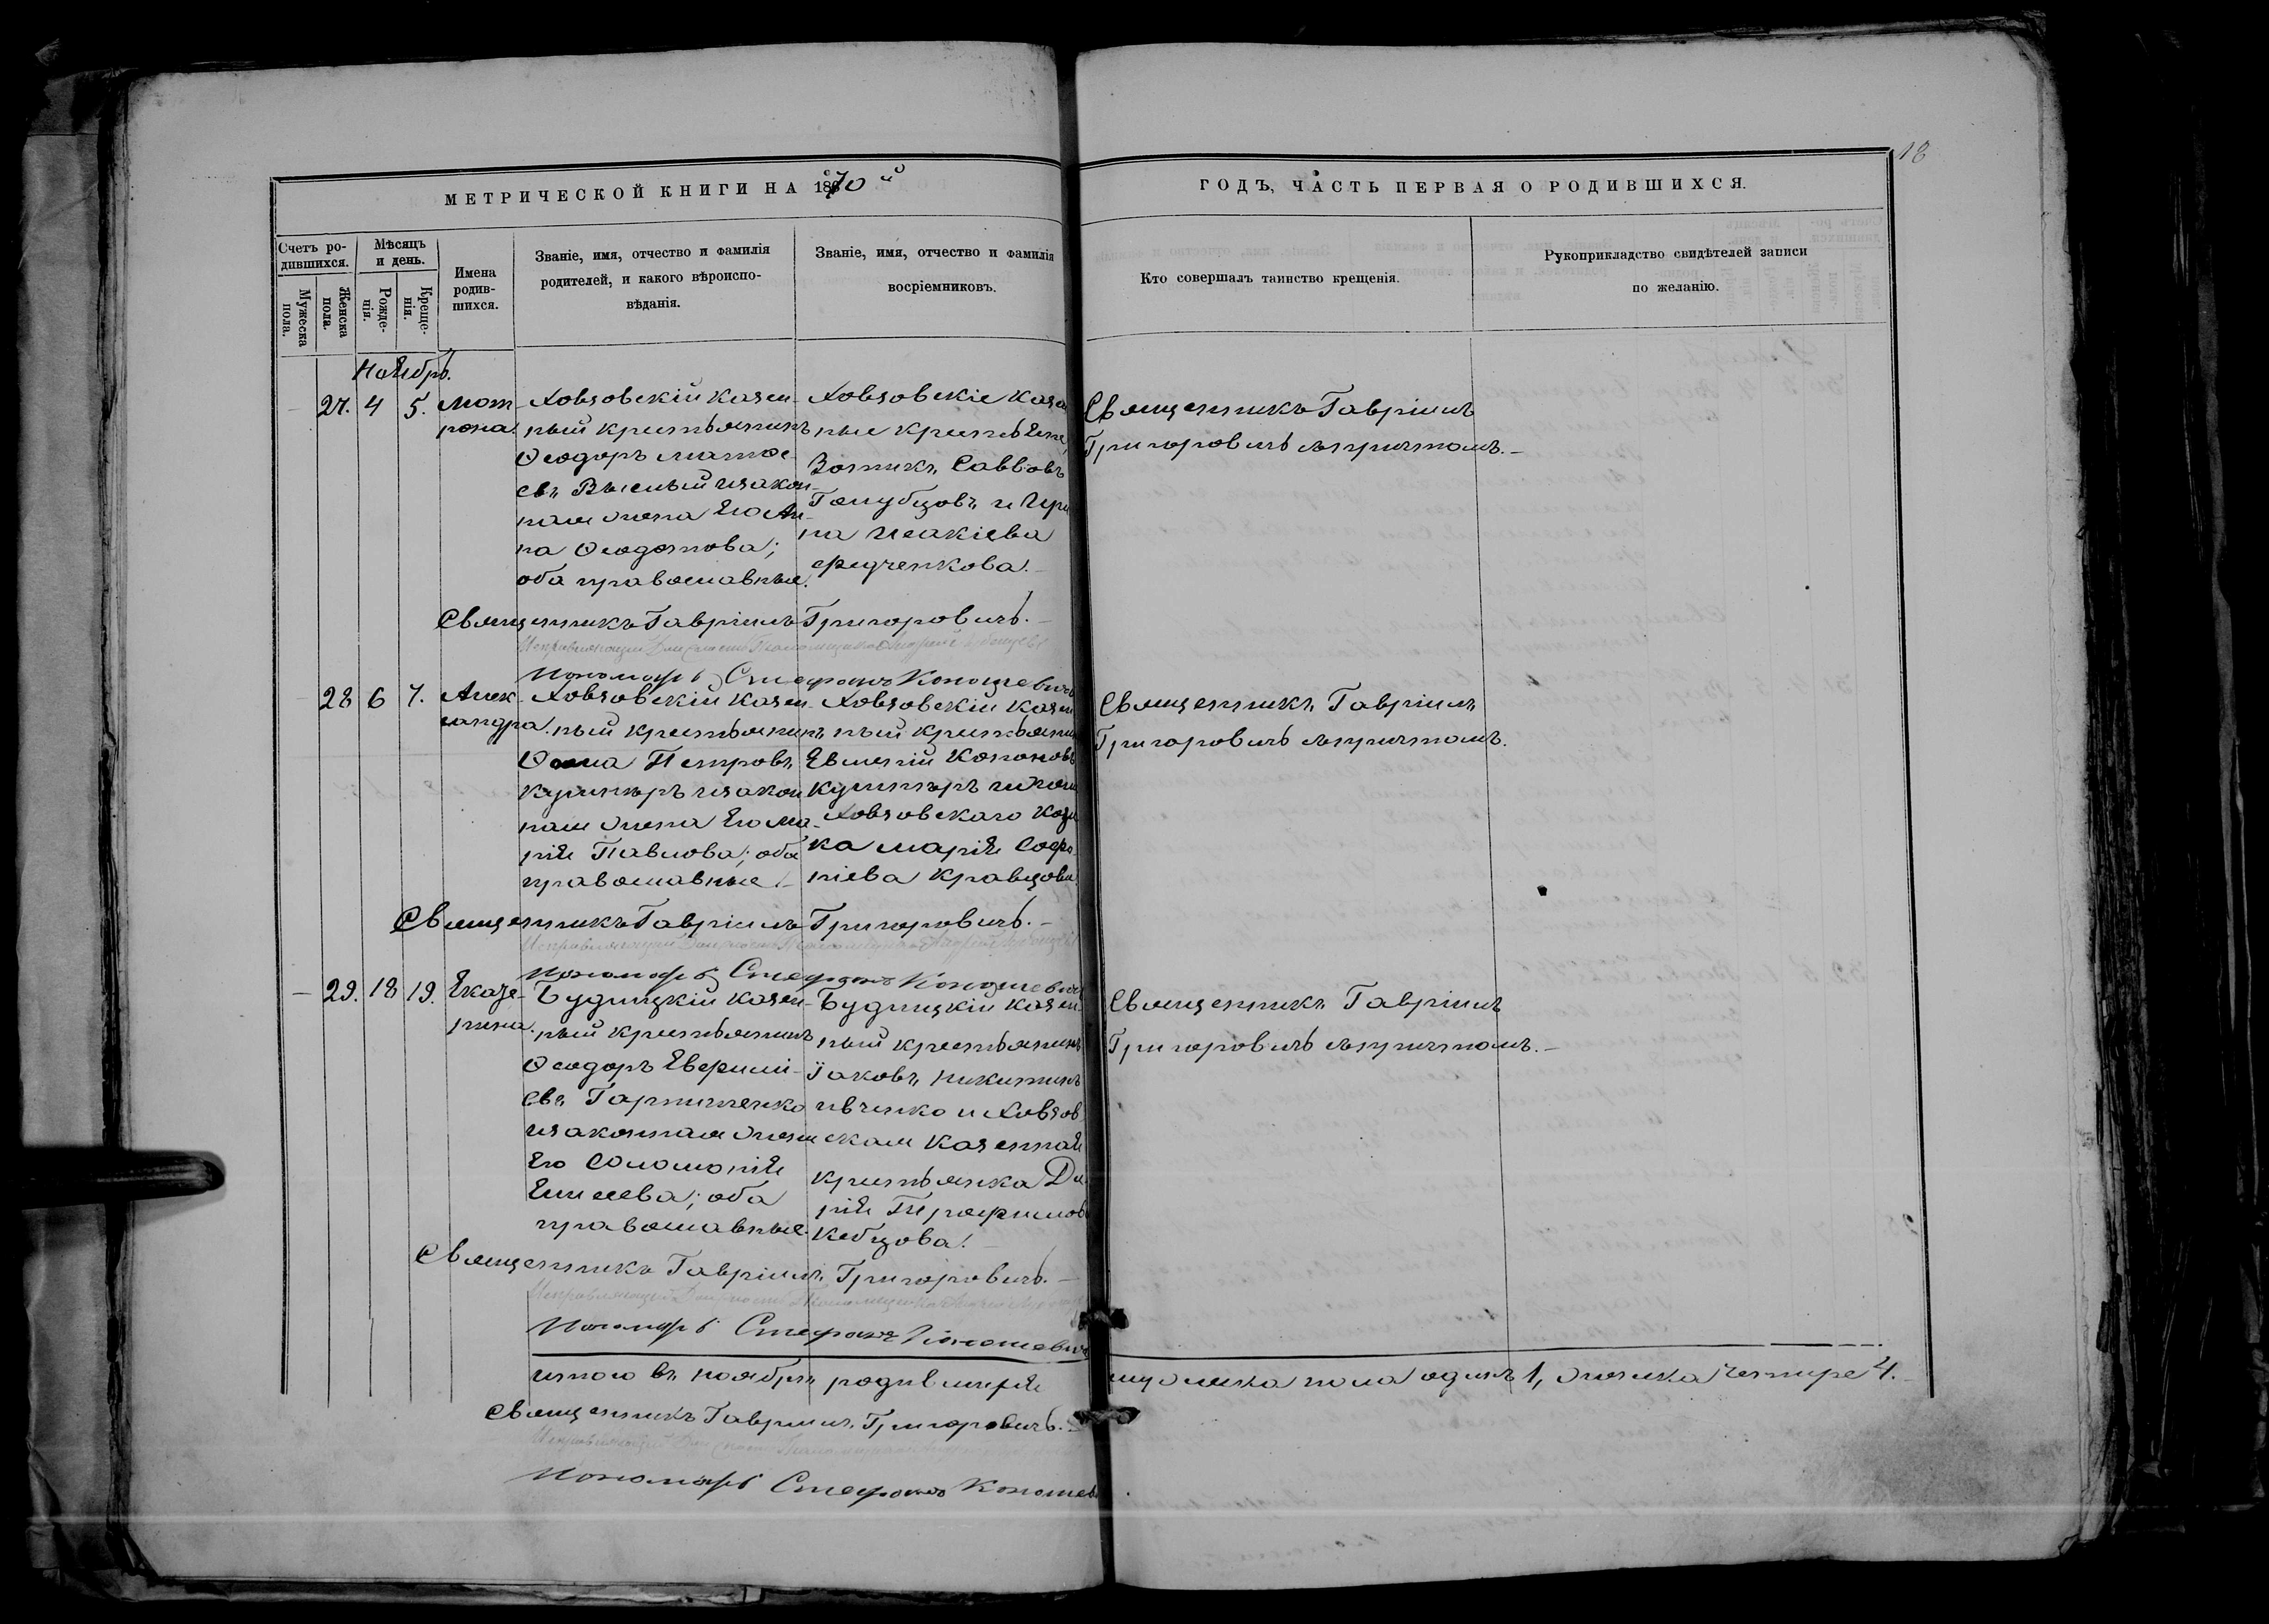 18
МЕТРИЧЕСКОЙ КНИГИ НА 1870й
ГОДЪ, ЧАСТЬ ПЕРВАЯ О РОДИВШИХСЯ.
Счетъ ро-
дившихся.
Мужеска
пола.
Женска
пола.
Мѣсяцъ
и день.
Рожде-
нія.
Креще-
нія.
Имена
родив-
шихся.
Званіе, имя, отчество и фамилія
родителей, и какого вѣроиспо-
вѣданія.
Званіе, имя, отчество и фамилія
воспріемниковъ.
Кто совершалъ таинство крещенія.
Рукоприкладство свидѣтелей записи
по желанію.
Ноябрь.
27. 4 5. Мот
рона.
Ловзовскій казен-
ный крестьянинъ
Ѳеодоръ Матѳе-
евъ
и закон-
ная жена его Ан-
на Ѳеодотова;
оба православные.
Ловзовскіе казен
ные крестьяне,
Зотикъ Саввовъ
Голубцовъ и Ири
на Исакіева
Федченкова.
Священникъ Гавріилъ
Григоровичъ съ причтомъ.
Священникъ Гавріилъ Григоровичъ.
Исправляющій Должность Псаломщика Андрей
Пономарь Стефанъ Кононевичъ
28 6 7. Алек
сандра.
Ловзовскій казен-
ный крестьянинъ
Ѳома Петровъ
Кушнеръ и закон
ная жена его Ма-
рія Павлова; оба
православные.
Ловзовскій казен
ный крестьянин
Евменій Кононовъ
Кушнеръ и жена
Ловзовскаго каза
ка Марія Софро-
ніева Кравцова.
Священникъ Гавріилъ
Григоровичъ съ причтомъ.
Священникъ Гавріилъ Григоровичъ.
Исправляющій Должность Псаломщика Андрей
Пономарь Стефанъ Кононевичъ
29. 18 19. Екате-
рина.
Будницкій казен-
ный крестьянинъ
Ѳеодоръ Евфимі-
евъ
и законная жена
его Соломонія
Елисеева; оба
православные.
Будницкій казен-
ный крестьянинъ
Іаковъ Никитинъ
Ивченко и Ловзов
ская казенная
крестьянка Да
рія Трофимова
Кебцова.
Священникъ Гавріилъ
Григоровичъ съ причтомъ.
Священникъ Гавріилъ Григоровичъ.
Исправляющій Должность Псаломщика Андрей
Пономарь Стефанъ Кононевичъ
Итого въ ноябрѣ родившихся мужеска пола одинъ 1, женска четыре 4.
Священникъ Гавріилъ Григоровичъ.
Исправляющій Должность Псаломщика
Пономарь Стефанъ Кононев